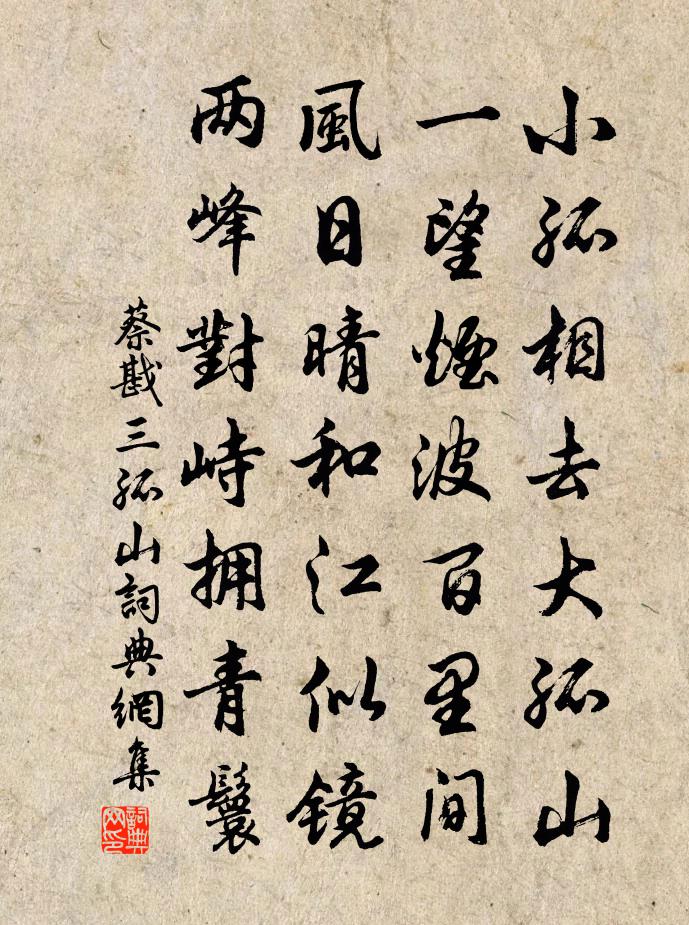 小孤相去大孤山
一望煙波百里間
風日晴和江似镜
两峰對峙拥青鬟
蔡戡三孤山詞典網集
詞典网印